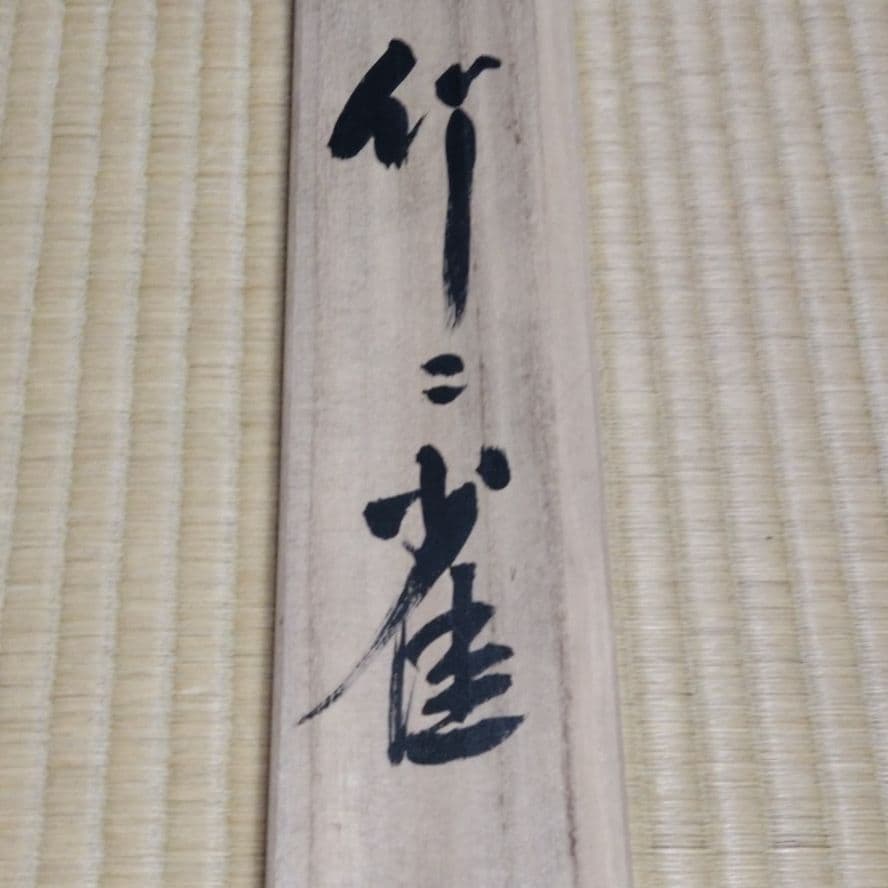 竹ニ雀